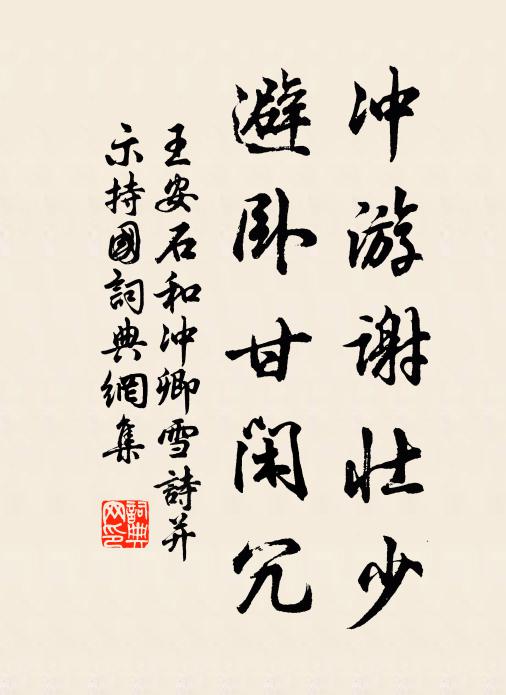 冲游谢壮少
避卧甘闲冗
王安石和冲卿雪詩并
示持國詞典網集
詞典网印